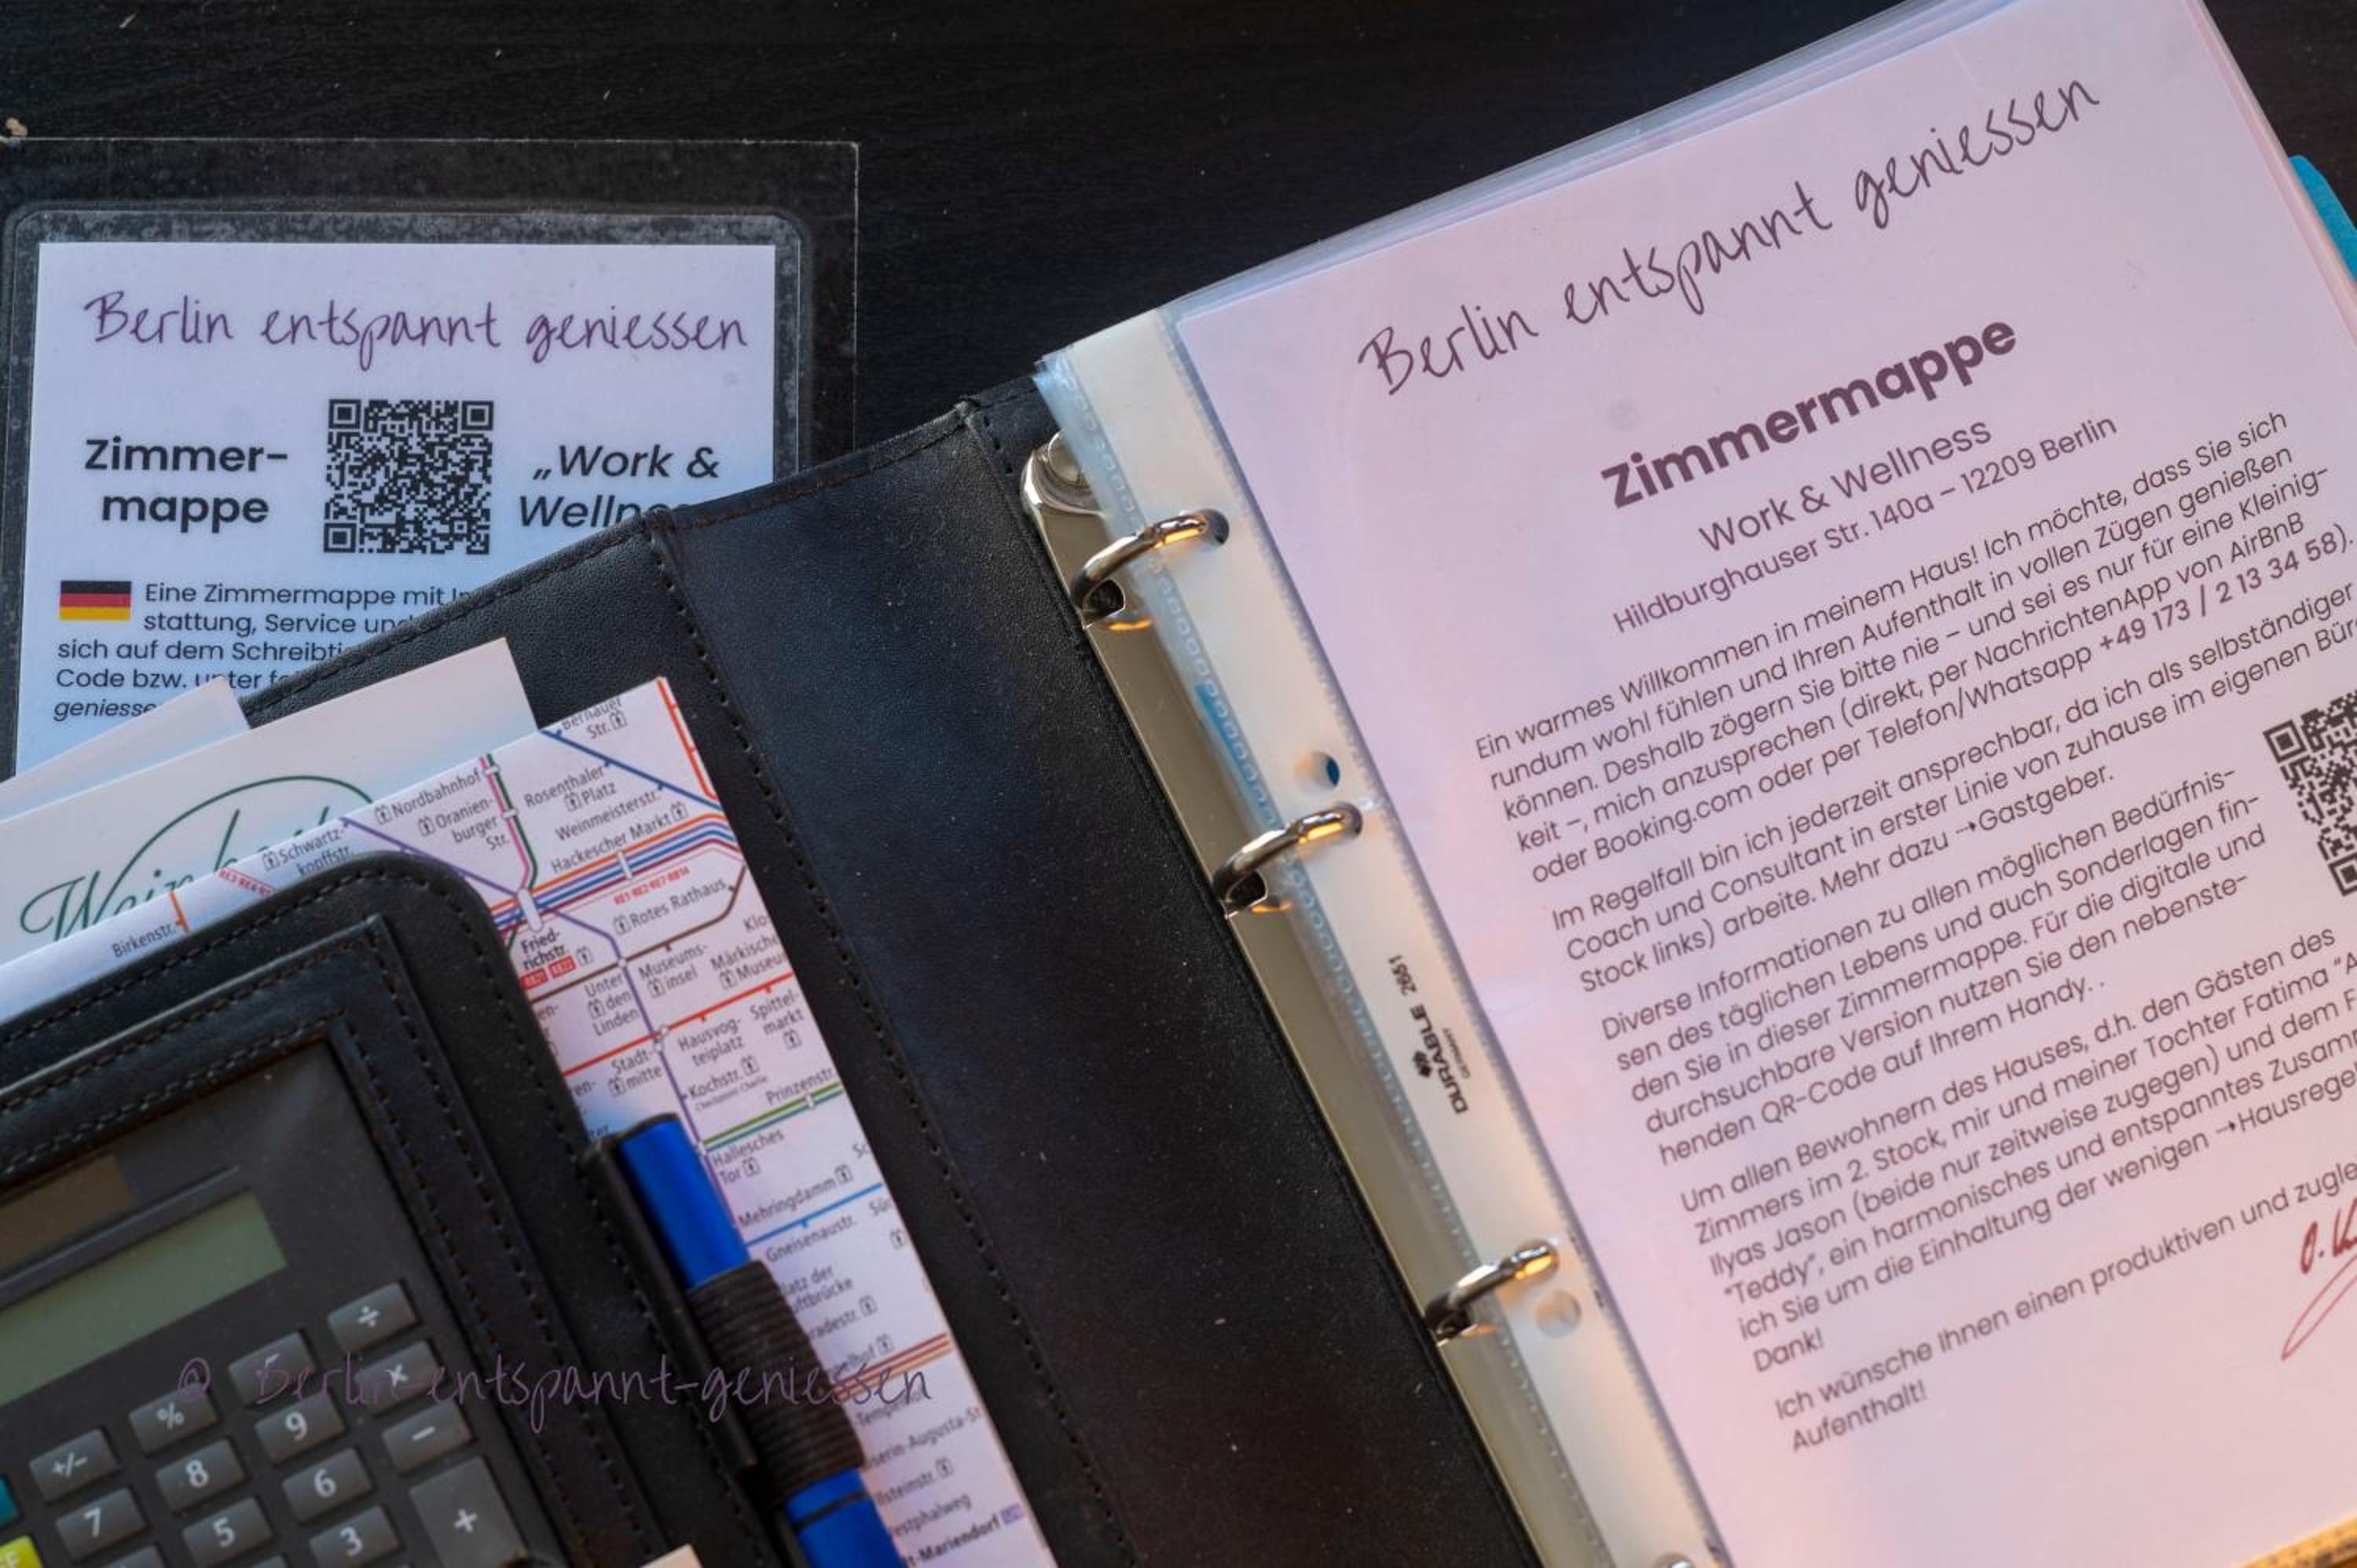 Berlin entspannt geniessen
Zimmer-
mappe
„Work &
Wellne
Eine Zimmermappe mit
stattung, Service und
sich auf dem Schreibti
Code bzw. unter
geniesse
Bernauer
Str.
Nordbahnhof
Oranien-
burger
Str.
Rosenthaler
Platz
Weinmeisterstr.
Hackescher Markt
Schwartz-
kopffstr.
Birkenstr.
Rotes Rathaus
Fried-
richstr.
Museums-
insel
Märkische
Museu
Unter
den
Linden
Hausvog-
teiplatz
Spittel-
markt
Stadt-
mitte
Kochstr.
Checkpoint Charlie
Prinzenstr.
Hallesches
Tor
Mehringdamm
Gneisenaustr.
latz der
uftbrücke
radestr.
elhof
iserin-Augusta-St
llsteinstr.
estphalweg
t-Mariendorf
÷
×
%
9
−
+/−
8
6
+
7
5
3
© Berlin-entspannt-geniessen
DURABLE 2651
GERMANY
Berlin entspannt geniessen
Zimmermappe
Work & Wellness
Hildburghauser Str. 140a – 12209 Berlin
Ein warmes Willkommen in meinem Haus! Ich möchte, dass Sie sich
rundum wohl fühlen und Ihren Aufenthalt in vollen Zügen genießen
können. Deshalb zögern Sie bitte nie – und sei es nur für eine Kleinig-
keit –, mich anzusprechen (direkt, per NachrichtenApp von AirBnB
oder Booking.com oder per Telefon/Whatsapp +49 173 / 2 13 34 58).
Im Regelfall bin ich jederzeit ansprechbar, da ich als selbständiger
Coach und Consultant in erster Linie von zuhause im eigenen Bür
Stock links) arbeite. Mehr dazu →Gastgeber.
Diverse Informationen zu allen möglichen Bedürfnis-
sen des täglichen Lebens und auch Sonderlagen fin-
den Sie in dieser Zimmermappe. Für die digitale und
durchsuchbare Version nutzen Sie den nebenste-
henden QR-Code auf Ihrem Handy. .
Um allen Bewohnern des Hauses, d.h. den Gästen des
Zimmers im 2. Stock, mir und meiner Tochter Fatima “A
Ilyas Jason (beide nur zeitweise zugegen) und dem F
“Teddy”, ein harmonisches und entspanntes Zusam
ich Sie um die Einhaltung der wenigen →Hausregel
Dank!
Ich wünsche Ihnen einen produktiven und zugle
Aufenthalt!